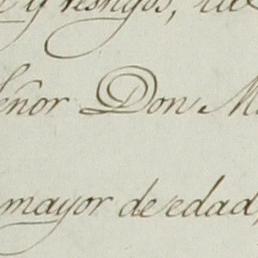 y testigos,
Señor Don M
mayor de edad,